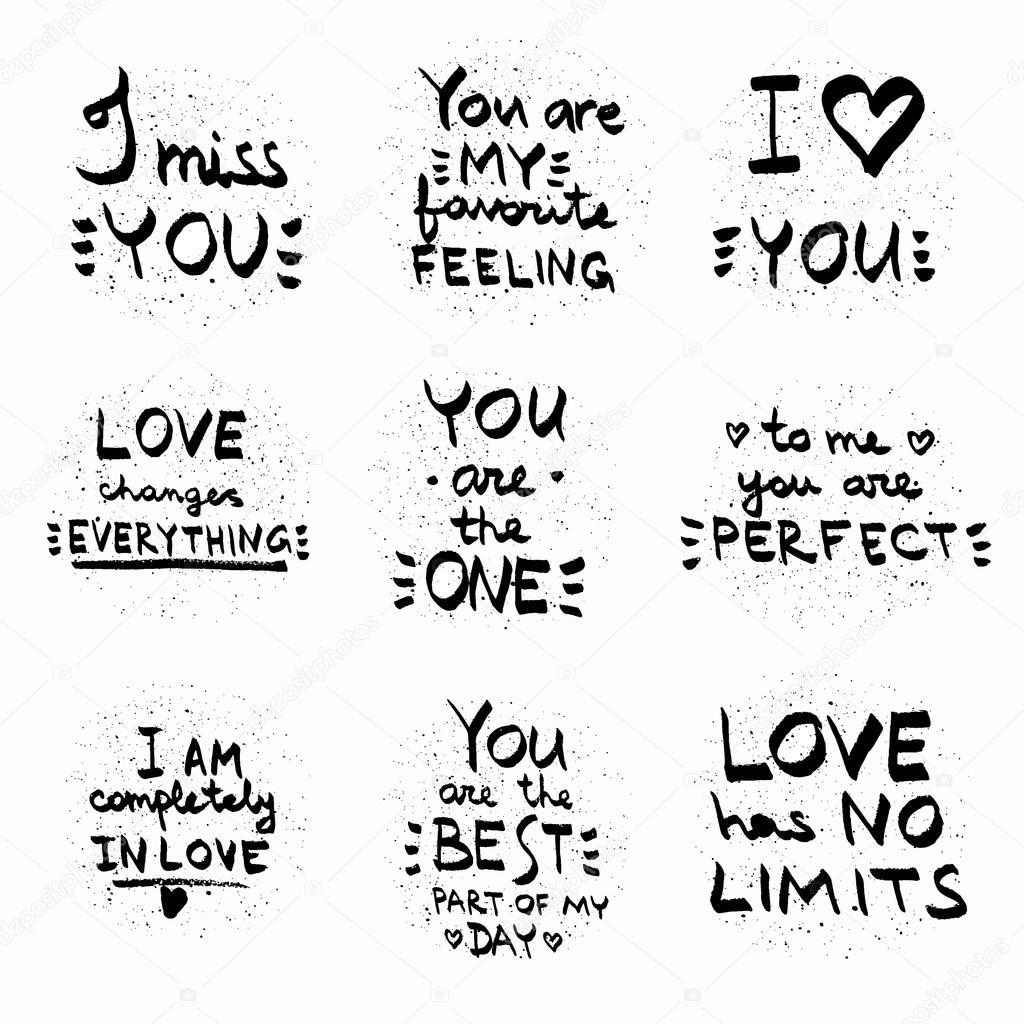 I miss
YOU
You are
MY
favorite
FEELING
I ♥
YOU
LOVE
changes
EVERYTHING
YOU
are
the
ONE
to me
you are
PERFECT
I AM
completely
IN LOVE
You
are the
BEST
PART OF MY
DAY
LOVE
has NO
LIMITS
depositphotos